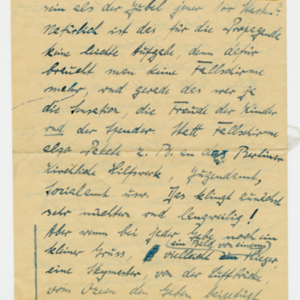 sein als der Jubel jener vor
Natürlich ist das für die Propaganda
keine leichte Aufgabe, denn dafür
braucht man keine Fallschirme
mehr, und gerade das war ja
die Sensation, die Freude der Kinder
und der Spender. Statt Fallschirme
also Pakete z. B. an das Berliner
Kirchliche Hilfswerk, Jugendamt,
Sozialamt usw. Das klingt zunächst
sehr nüchtern und langweilig!
Aber wenn bei jeder Gabe noch ein
kleiner Gruss, vielleicht ein Bild von einem Flieger,
eine Skymaster, von der Luftbrücke,
vom Ozean den Gaben